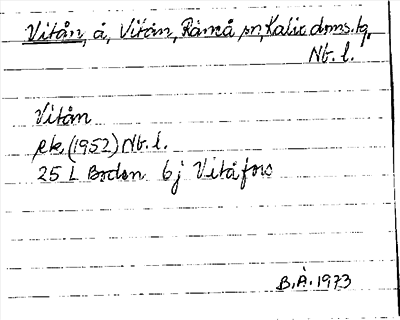 Vitån, å, Vitån, Råneå sn, Kalix doms.tg.
Nb. l.
Vitån
ek. (1952) Nb. l.
25 L Boden 6j Vitåfors
B.Å. 1973